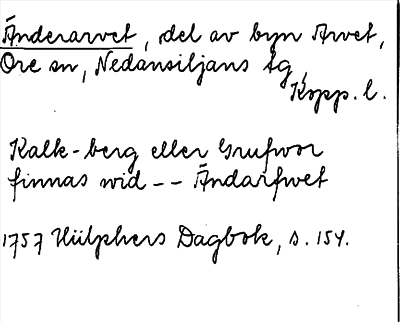 Änderarvet, del av byn Arvet,
Ore sn, Nedansiljans tg,
Kopp. l.
Kalk-berg eller Grufwor
finnas wid -- Ändarfwet
1757 Hülphers Dagbok, s. 154.